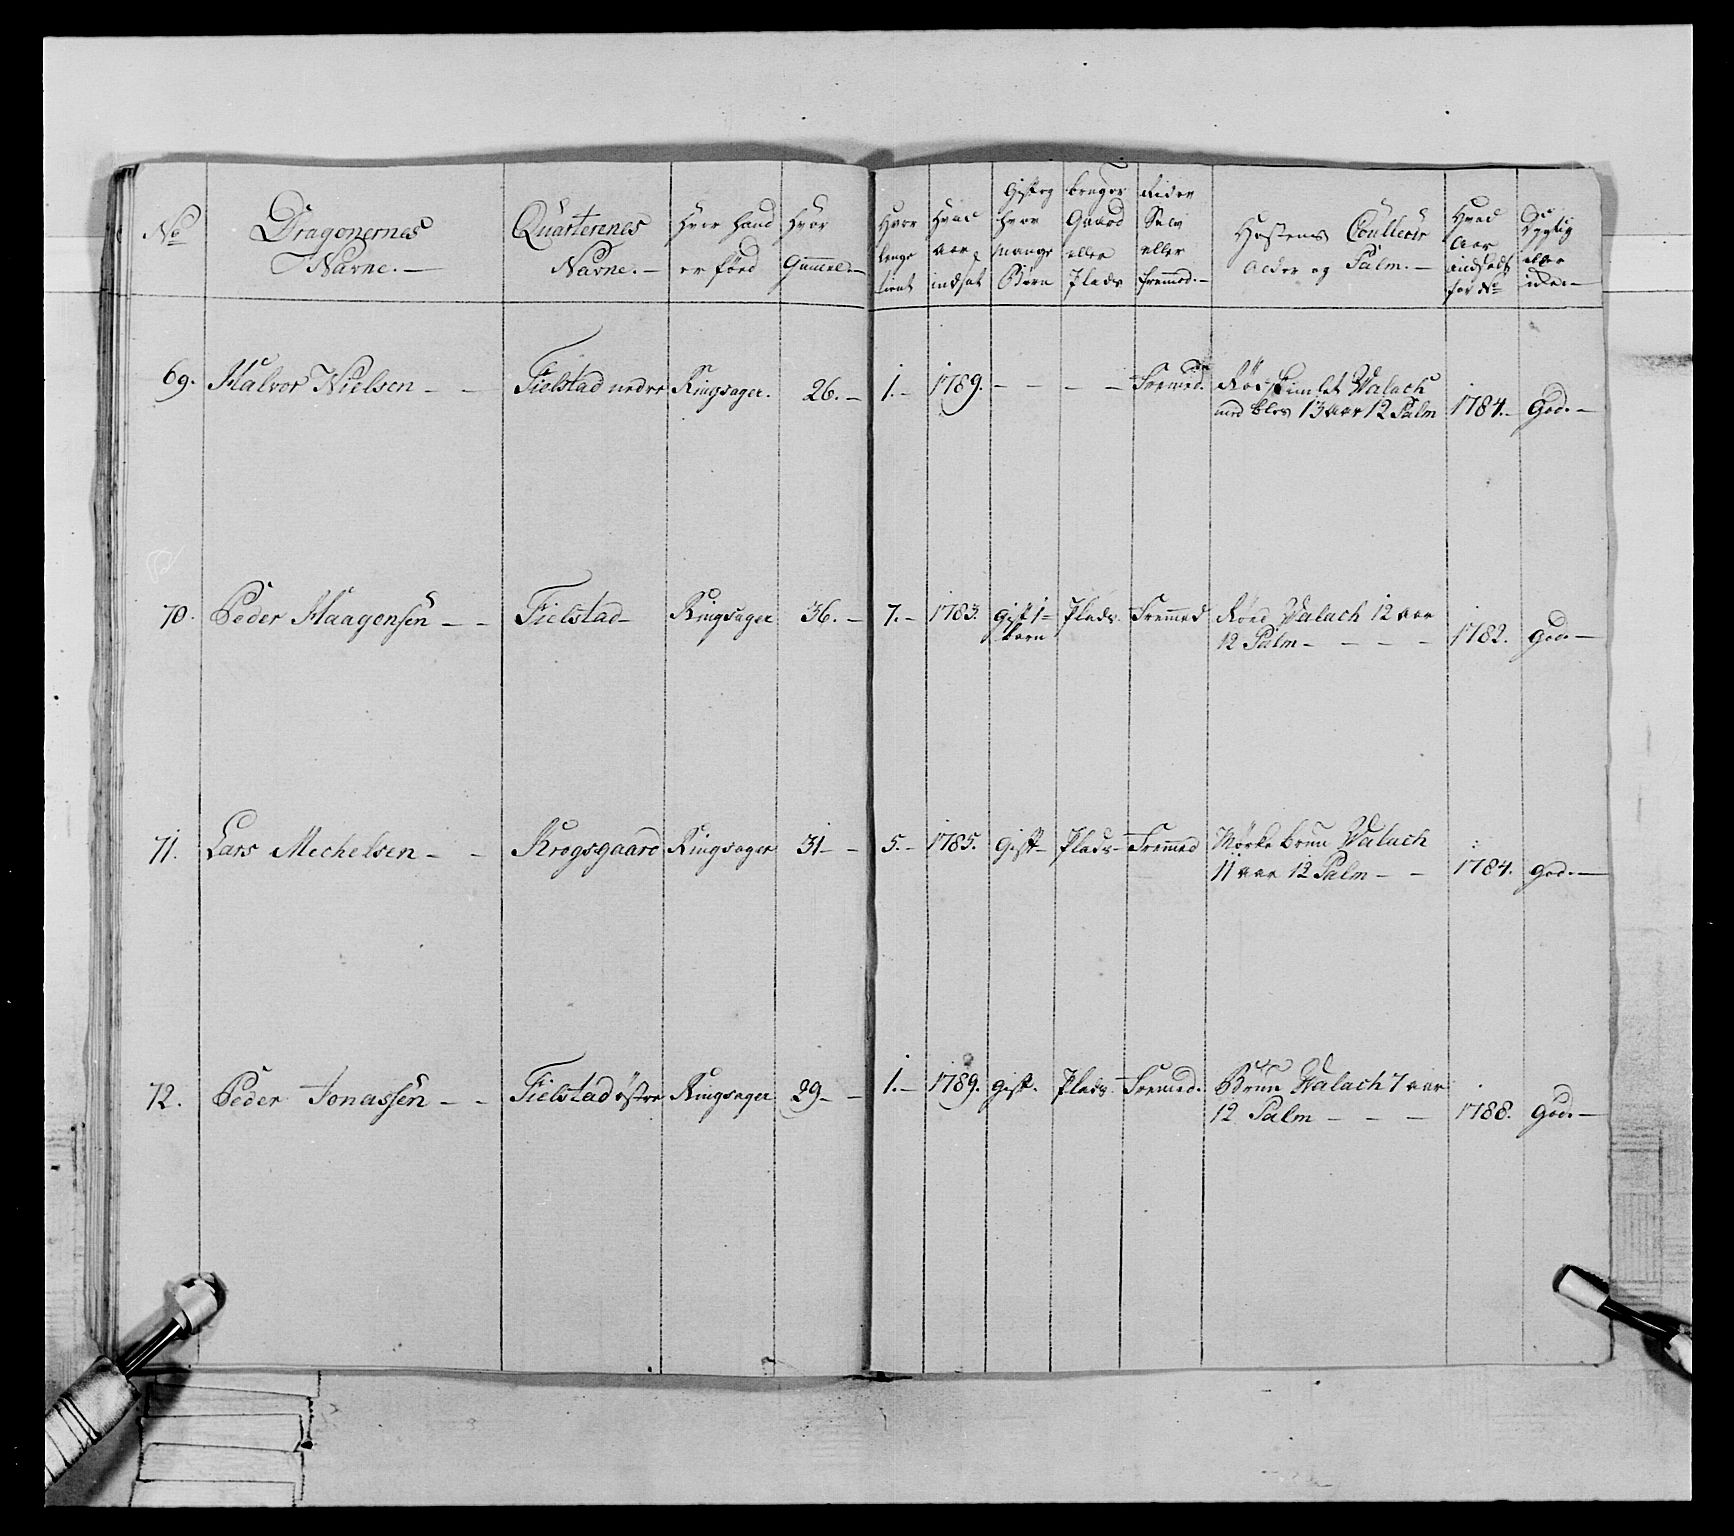 No | Dragonernes Navne. — | Quarterenes Navne. — | Hvor hand er föed | Hvor Gammel. — | Hvor lenge tient | Hvad aar indsat | Gift og hvor mange Börn | bruger Gaard eller Plads | Rider Selv eller fremmed. — | Hestens Coulleur Alder og Palm. — | Hvad Aar indsadt for No | Dygtig eller ikke —
69. Halvor Nielsen — — | Fielstad nedre | Ringsager. | 26. — | 1. — | 1789. | — — | — — | Fremed. | Röd skimlet Valach
med bles 13 aar 12 Palm | 1784. — | God. —
70. Peder Haagensen — — | Fielstad — | Ringsager | 36. — | 7. — | 1783. | Gift 1 — | Plads. | Fremmed | Röed Valach 12 aar
barn | 12 Palm — — — — | 1782. | God. —
71. Lars Mechelsen — — | Krogsgaard | Ringsager | 31 — — | 5. — | 1785. | Gift — | Plads — | Fremmed | Mørke brun Valach
11 aar 12 Palm — — | 1784. | God. —
72. Peder Jonassen — — | Fielstad östre | Ringsager | 29 — — | 1. — | 1789. | Gift. | Plads. | Fremed. | Brun Valach 7 aar
12 Palm — — — | 1788. | God. —